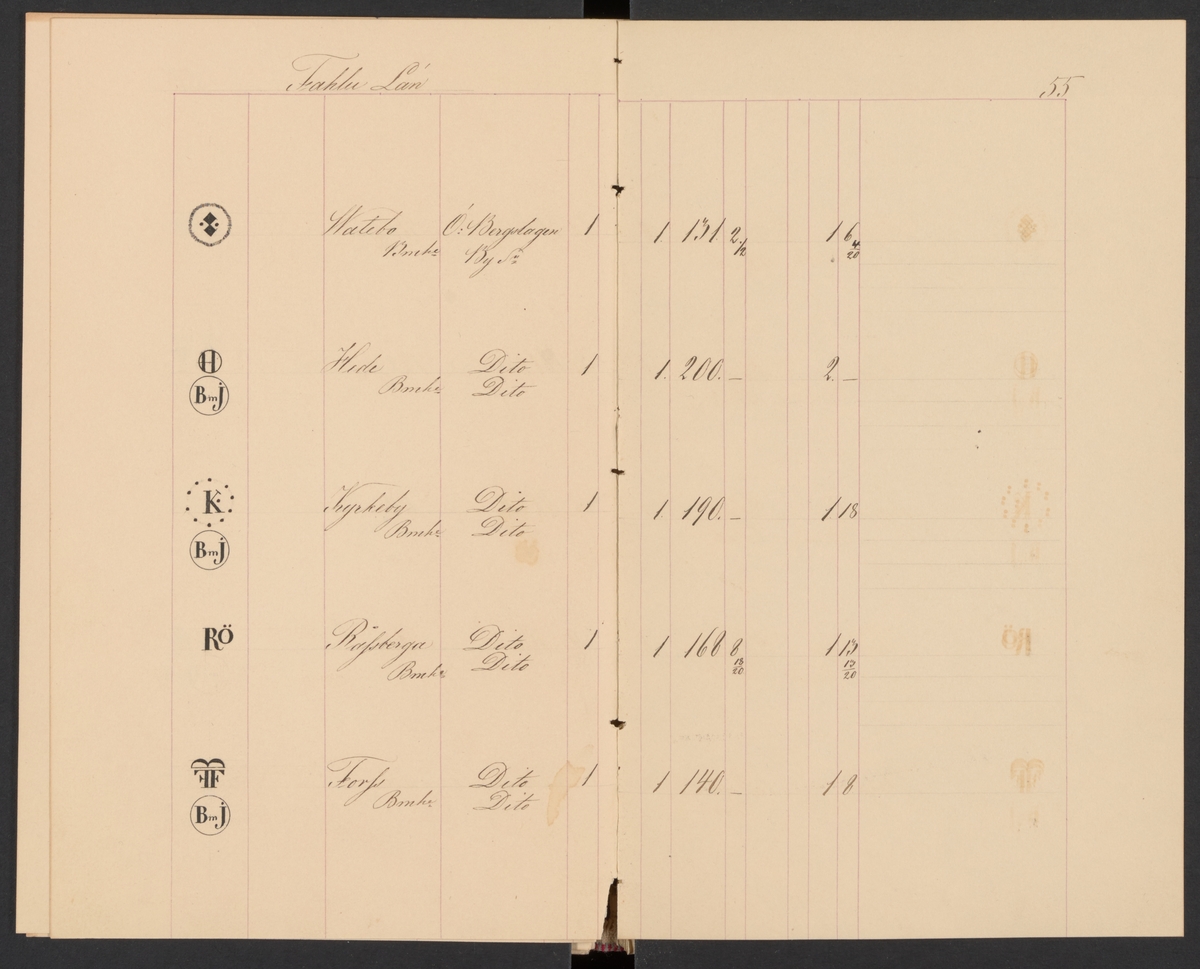 Fahlu Län 55
Watebo Ö: Bergslagen 1 1 131. 2. 1/2 1 6 4/20
Bruk: By Sn
H Hede Dito 1 1. 200. — 2. —
BmJ Bruk: Dito
K Kyrkeby Dito 1 1 190. — 1 18
BmJ Bruk: Dito
RÖ Råssberga Dito 1 1 168 8 13/20 1 13 13/20
Bruk: Dito
FF Forss Dito 1 1 140. — 1 8
BmJ Bruk: Dito